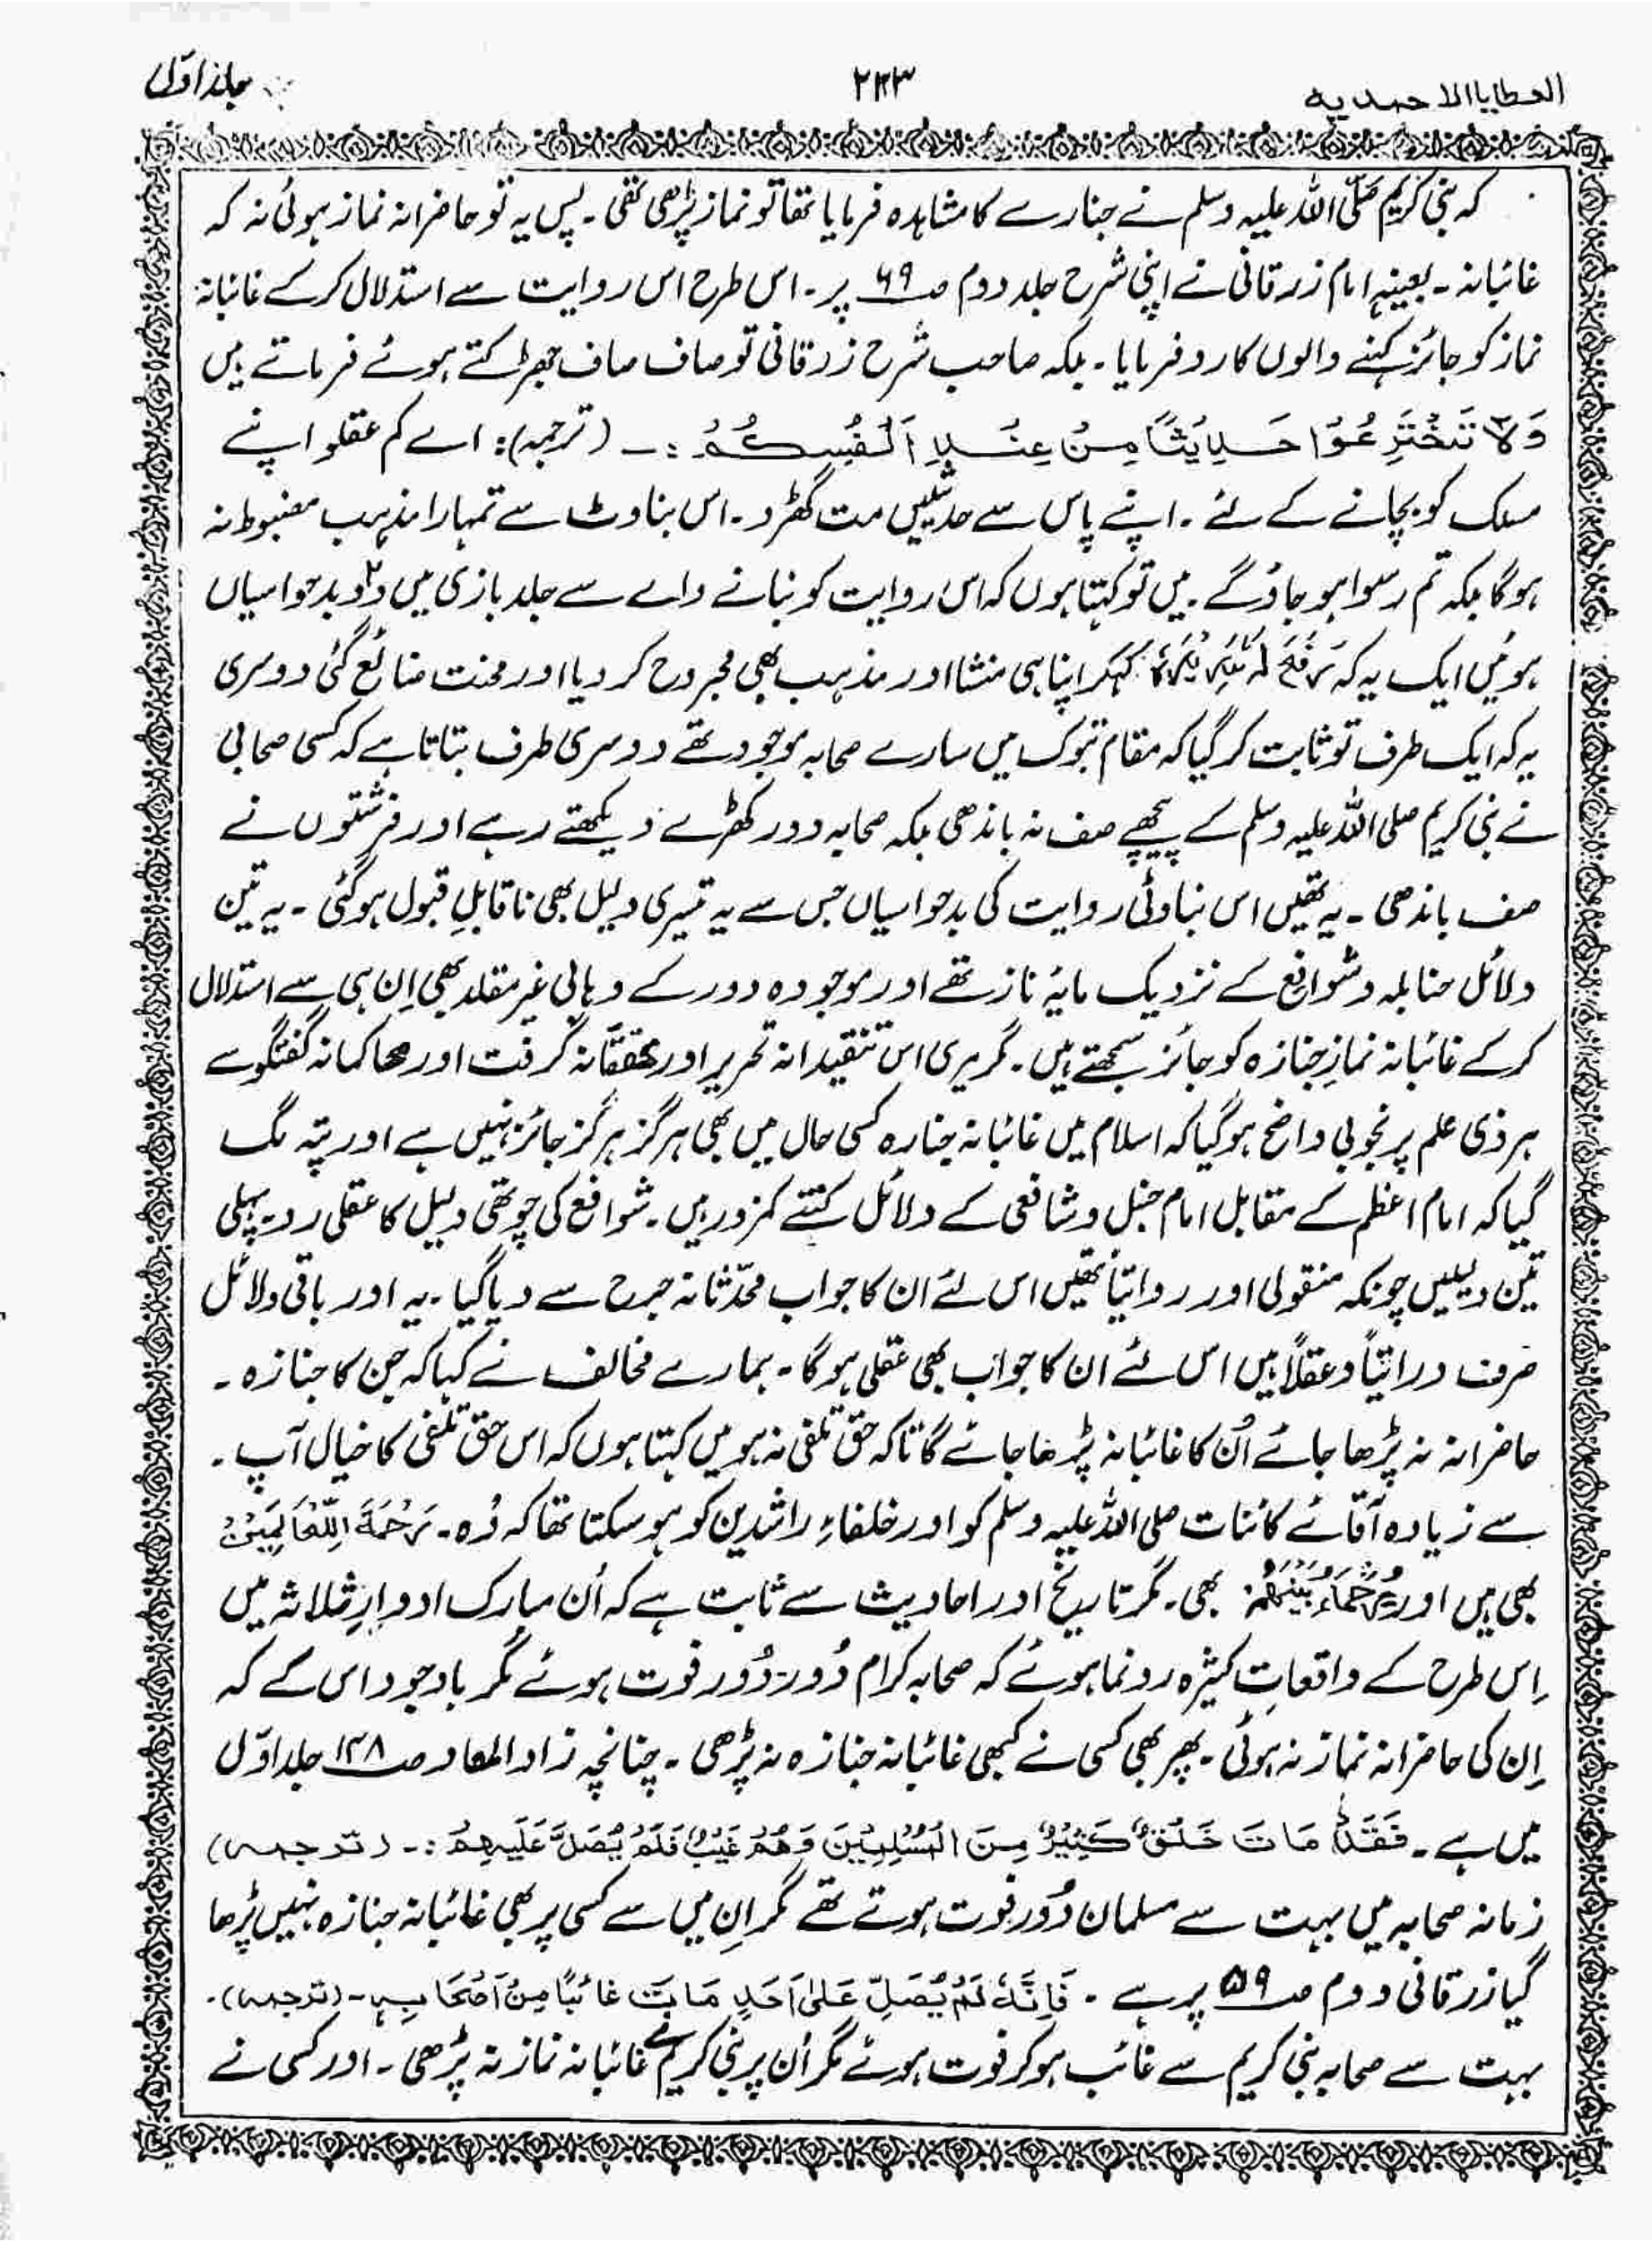 العطایا الاحمدیہ
۲۴۳
جلد اوّل
کہ نبی کریم صلّی اللہ علیہ وسلم نے جنازے کا مشاہدہ فرمایا تھا تو نماز پڑھی تھی ۔ پس یہ تو حاضرانہ نماز ہوئی نہ کہ
غائبانہ ۔ بعینہٖ امام زرقانی نے اپنی شرح جلد دوم صـ ۶۹ پر ۔ اس طرح اس روایت سے استدلال کر کے غائبانہ
نماز کو جائز کہنے والوں کا رد فرمایا ۔ بلکہ صاحب شرح زرقانی تو صاف صاف جھڑکتے ہوئے فرماتے ہیں
وَلَا تَخْتَرِعُوْا حَدِیْثًا مِنْ عِنْدِ اَنْفُسِکُمْ :۔ (ترجمہ): اے کم عقلو اپنے
مسلک کو بچانے کے لئے ۔ اپنے پاس سے حدیثیں مت گھڑو ۔ اس بناوٹ سے تمہارا مذہب مضبوط نہ
ہوگا بلکہ تم رسوا ہو جاؤگے ۔ میں تو کہتا ہوں کہ اس روایت کو بنانے والے سے جلد بازی میں دو۲ بدحواسیاں
ہوئیں ایک یہ کہ رَفَعَ لَہٗ سَرِیْرَہٗ کہکر اپنا ہی منشا اور مذہب بھی مجروح کر دیا اور محنت ضائع گئی دوسری
یہ کہ ایک طرف تو ثابت کر گیا کہ مقام تبوک میں سارے صحابہ موجود تھے دوسری طرف بتاتا ہے کہ کسی صحابی
نے نبی کریم صلی اللہ علیہ وسلم کے پیچھے صف نہ باندھی بلکہ صحابہ دور کھڑے دیکھتے رہے اور فرشتوں نے
صف باندھی ۔ یہ تھیں اس بناوٹی روایت کی بدحواسیاں جس سے یہ تیسری دلیل بھی ناقابلِ قبول ہوگئی ۔ یہ تین
دلائل حنابلہ و شوافع کے نزدیک مایۂ ناز تھے اور موجودہ دور کے وہابی غیر مقلد بھی اِن ہی سے استدلال
کر کے غائبانہ نمازِ جنازہ کو جائز سمجھتے ہیں ۔ مگر میری اس تنقیدانہ تحریر اور محققانہ گرفت اور محاکمانہ گفتگو سے
ہر ذی علم پر بخوبی واضح ہوگیا کہ اسلام میں غائبانہ جنازہ کسی حال میں بھی ہرگز ہرگز جائز نہیں ہے اور پتہ لگ
گیا کہ امام اعظم کے مقابل امام حنبل و شافعی کے دلائل کتنے کمزور ہیں ۔ شوافع کی چوتھی دلیل کا عقلی رد ۔ پہلی
تین دلیلیں چونکہ منقولی اور روایتاً تھیں اس لئے ان کا جواب محدّثانہ جرح سے دیا گیا ۔ یہ اور باقی دلائل
صرف درایتاً و عقلاً ہیں اس لئے ان کا جواب بھی عقلی ہوگا ۔ ہمارے مخالف نے کہا کہ جن کا جنازہ ۔
حاضرانہ نہ پڑھا جائے اُن کا غائبانہ پڑھا جائے گا تاکہ حق تلفی نہ ہو میں کہتا ہوں کہ اس حق تلفی کا خیال آپ ۔
سے زیادہ آقائے کائنات صلی اللہ علیہ وسلم کو اور خلفاءِ راشدین کو ہو سکتا تھا کہ وُہ ۔ رَحْمَۃَ لِّلْعَالَمِیْنَ
بھی ہیں اور رُحَمَآءُ بَیْنَهُمْ بھی ۔ مگر تاریخ اور احادیث سے ثابت ہے کہ اُن مبارک ادوارِ ثلاثہ میں
اِس طرح کے واقعاتِ کثیرہ رونما ہوئے کہ صحابہ کرام دُور ۔ دُور فوت ہوئے مگر باوجود اس کے کہ
اِن کی حاضرانہ نماز نہ ہوئی ۔ پھر بھی کسی نے کبھی غائبانہ جنازہ نہ پڑھی ۔ چنانچہ زاد المعاد صـ ۱۴۸ جلد اوّل
میں ہے ۔ فَقَدْ مَاتَ خَلْقٌ کَثِیْرٌ مِنَ الْمُسْلِمِیْنَ وَهُمْ غَیْبٌ فَلَمْ یُصَلِّ عَلَیْهِمْ :۔ (ترجمہ)
زمانہ صحابہ میں بہت سے مسلمان دُور فوت ہوتے تھے مگر اِن میں سے کسی پر بھی غائبانہ جنازہ نہیں پڑھا
گیا زرقانی دوم صـ ۵۹ پر ہے ۔ فَاِنَّهٗ لَمْ یُصَلِّ عَلٰی اَحَدٍ مَاتَ غَائِبًا مِنْ اَصْحَابِہٖ ۔ (ترجمہ) ۔
بہت سے صحابہ نبی کریم سے غائب ہو کر فوت ہوئے مگر اُن پر نبی کریم نے غائبانہ نماز نہ پڑھی ۔ اور کسی نے